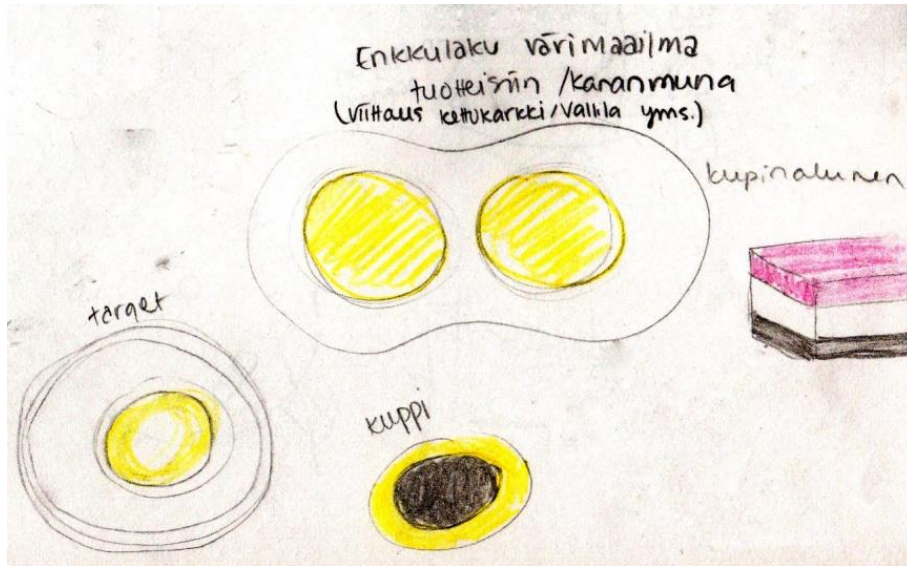 Enkkulaku värimaailma
tuotteisiin /kananmuna
(viittaus kettukarkki/Vallila yms.)
kupinalunen
target
kuppi